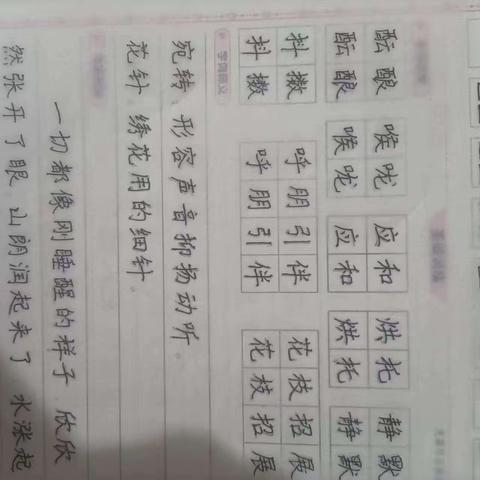 酝酿 喉咙 应和 烘托 静默
酝酿 喉咙 应和 烘托 静默
抖擞 呼朋引伴 花枝招展
抖擞 呼朋引伴 花枝招展
字词释义
宛转 形容声音抑扬动听
花针 绣花用的细针
一切都像刚睡醒的样子 欣欣
然张开了眼 山朗润起来了 水涨起